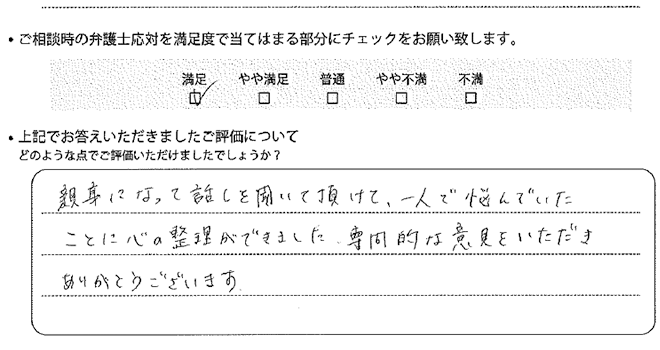 ・ご相談時の弁護士応対を満足度で当てはまる部分にチェックをお願い致します。
満足 やや満足 普通 やや不満 不満
・上記でお答えいただきましたご評価について
どのような点でご評価いただけましたでしょうか？
親身になって話しを聞いて頂けて、一人で悩んでいた
ことに心の整理ができました。専門的な意見をいただき
ありがとうございます。